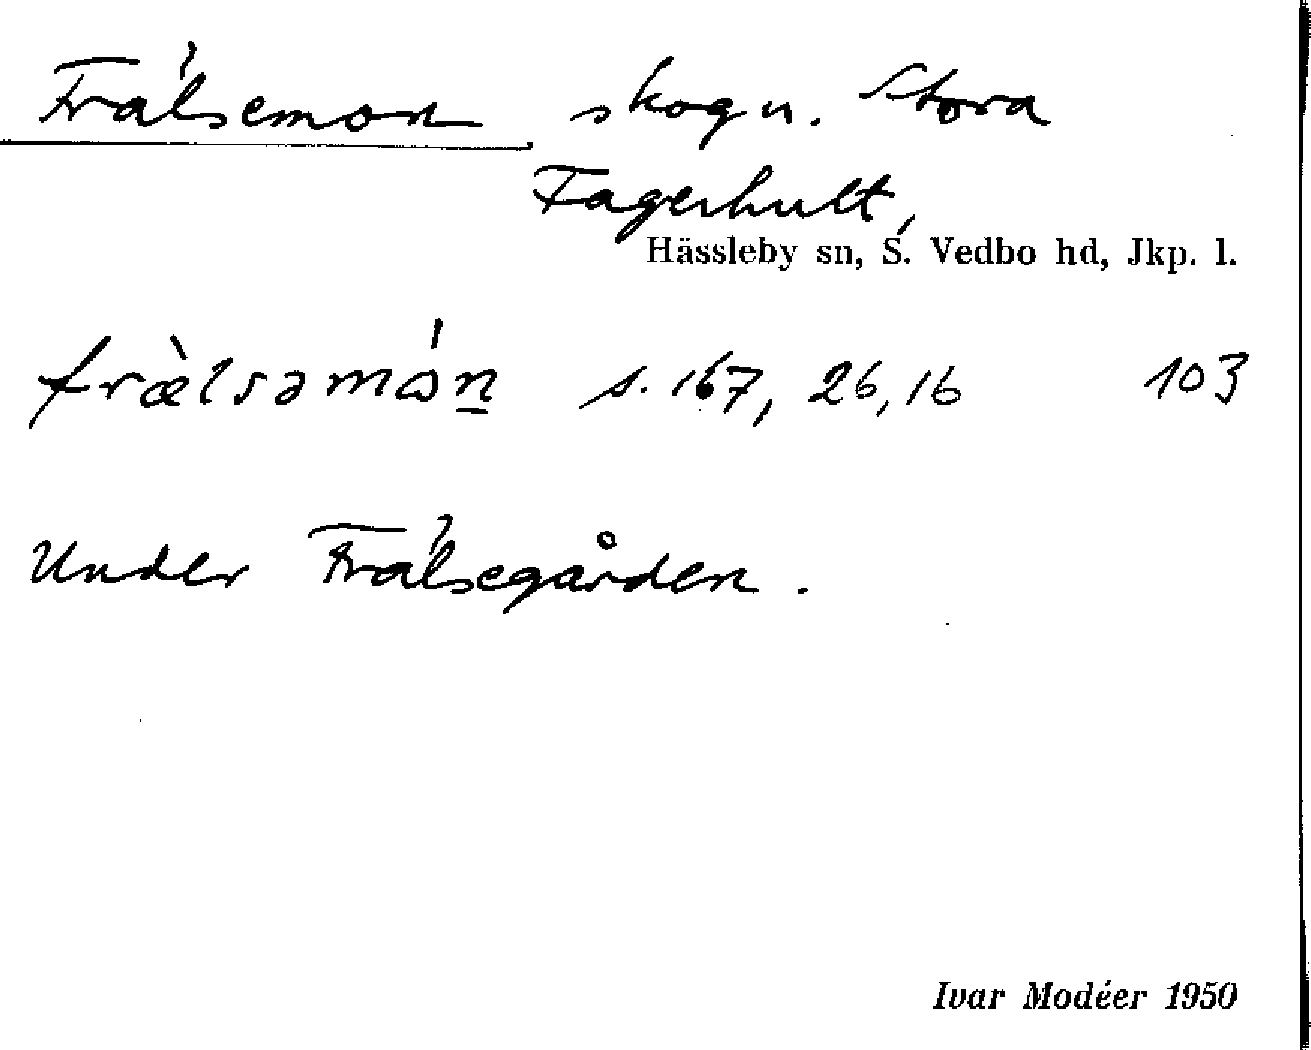 Frälsemon skogn. Stora
Fagerhult,
Hässleby sn, S. Vedbo hd, Jkp. l.
fræ̀lsəmɷ́n̲ s. 167, 26,16 103
Under Frälsegården.
Ivar Modéer 1950